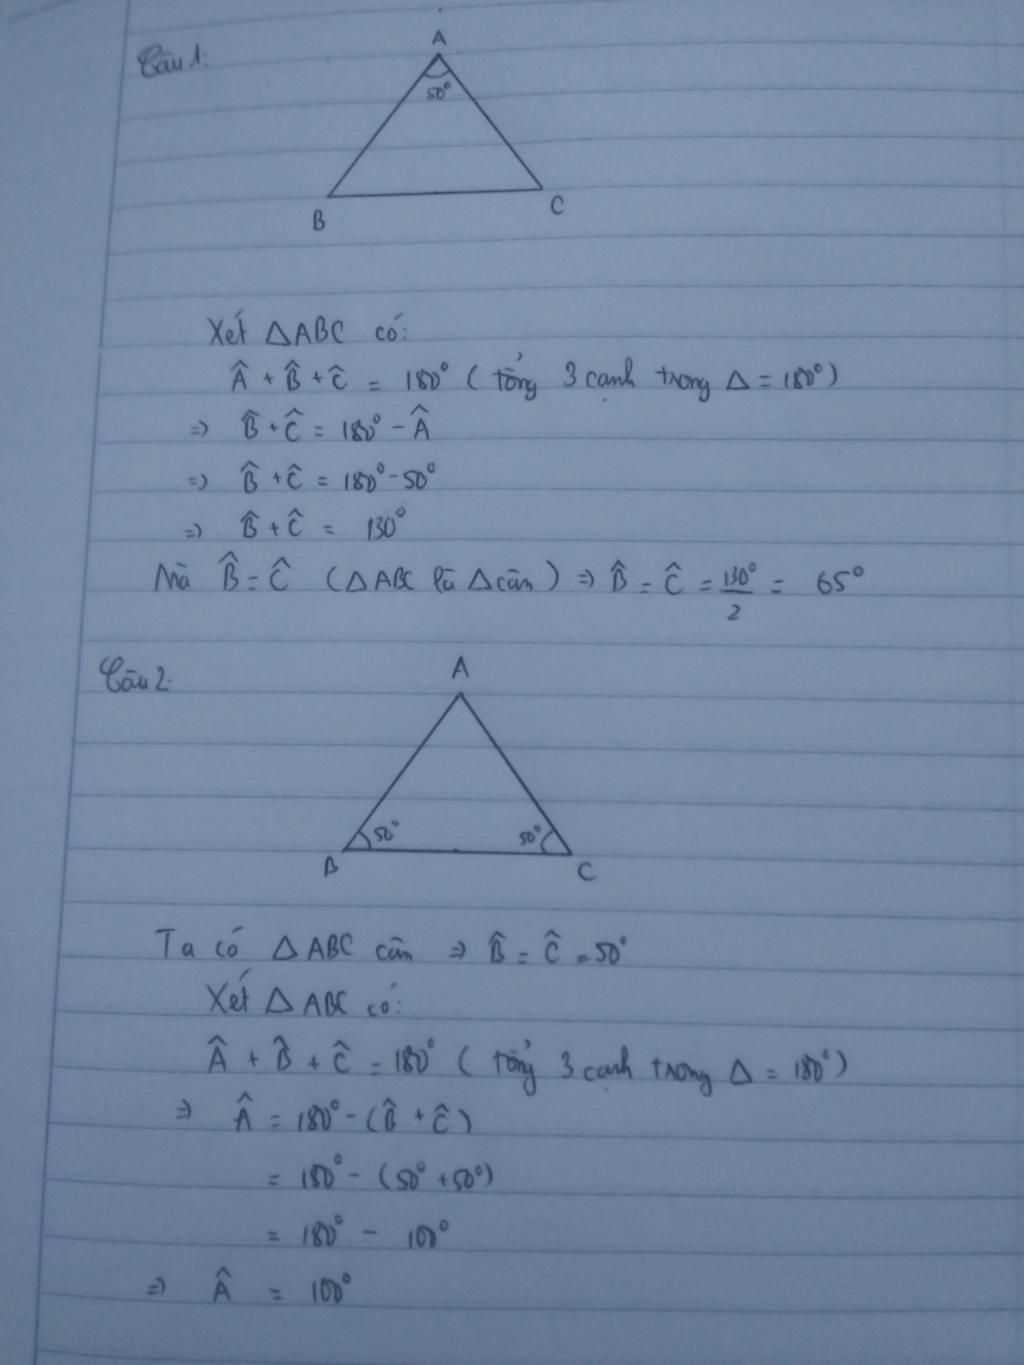 Câu 1:
A
50°
B
C
Xét △ABC có:
Â + B̂ + Ĉ = 180° ( tổng 3 cạnh trong △ = 180°)
=> B̂ + Ĉ = 180° - Â
=> B̂ + Ĉ = 180° - 50°
=> B̂ + Ĉ = 130°
Mà B̂ = Ĉ (△ABC là △cân) => B̂ = Ĉ = 130°/2 = 65°
Câu 2:
A
50° 50°
B
C
Ta có △ABC cân => B̂ = Ĉ = 50°
Xét △ABC có:
Â + B̂ + Ĉ = 180° ( tổng 3 cạnh trong △ = 180°)
=> Â = 180° - (B̂ + Ĉ)
= 180° - (50° + 50°)
= 180° - 100°
=> Â = 100°